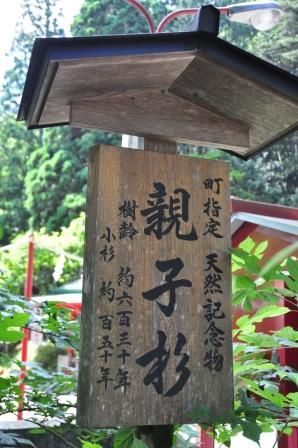 町指定 天然記念物
親子杉
樹齢 約六百三十年
小杉 約百五十年